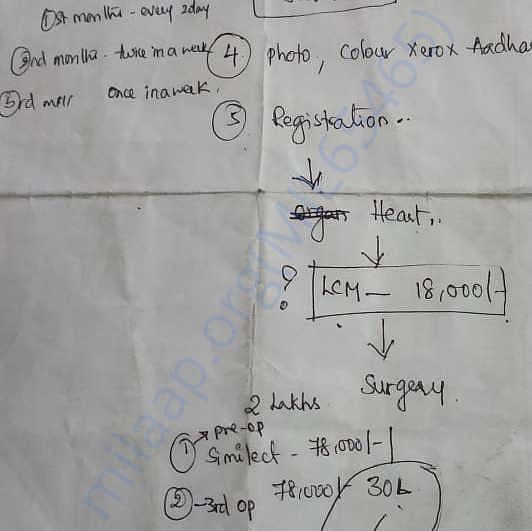 ① 1st months - every 2day
② 2nd months - twice in a week
③ 3rd once in a week.
④ Photo, Colour Xerox Aadha
⑤ Registration..
Heart..
? LCM — 18,000/-
Surgery.
2 Lakhs
① pre-op
Similect - 78,000/-
② - 3rd op 78,000/- 30L
milaap.org